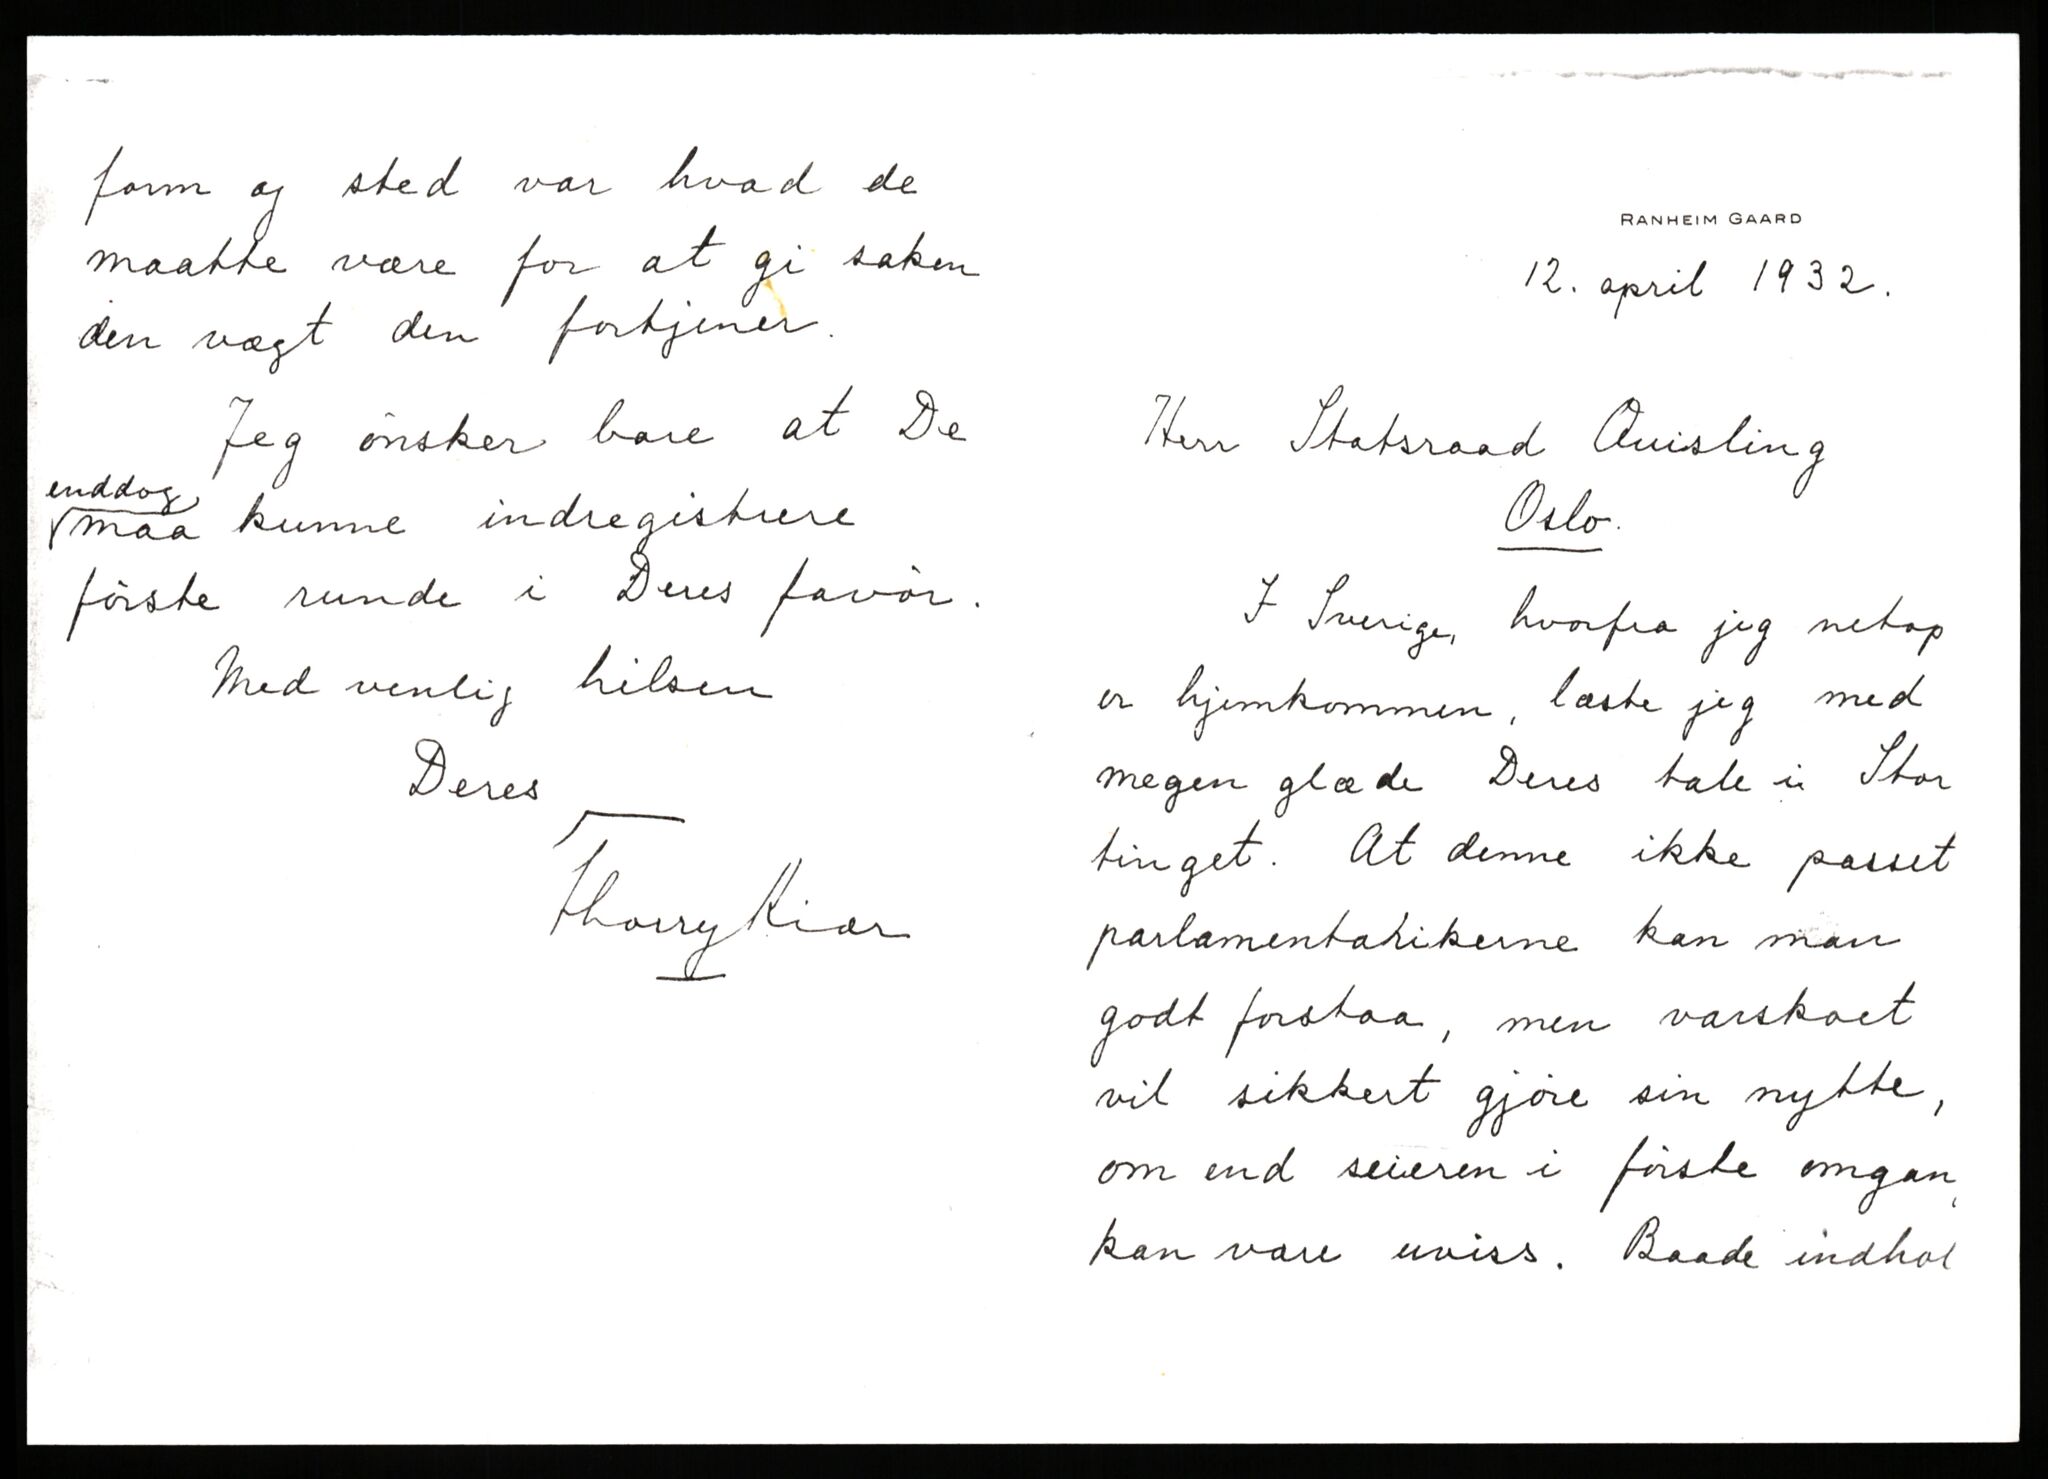 RANHEIM GAARD
12. april 1932.
Herr Statsraad Quisling
Oslo.
I Sverige, hvorfra jeg netop
er hjemkommen, læste jeg med
megen glæde Deres tale i Stor
tinget. At denne ikke passet
parlamentarikerne kan man
godt forstaa, men varskoet
vil sikkert gjöre sin nytte,
om end seieren i förste omgan
kan være uviss. Baade indhol
form og sted var hvad de
maatte være for at gi saken
den vægt den fortjener.
Jeg önsker bare at De
enddog
maa kunne indregistrere
förste runde i Deres favör.
Med venlig hilsen
Deres
Thorry Kiær